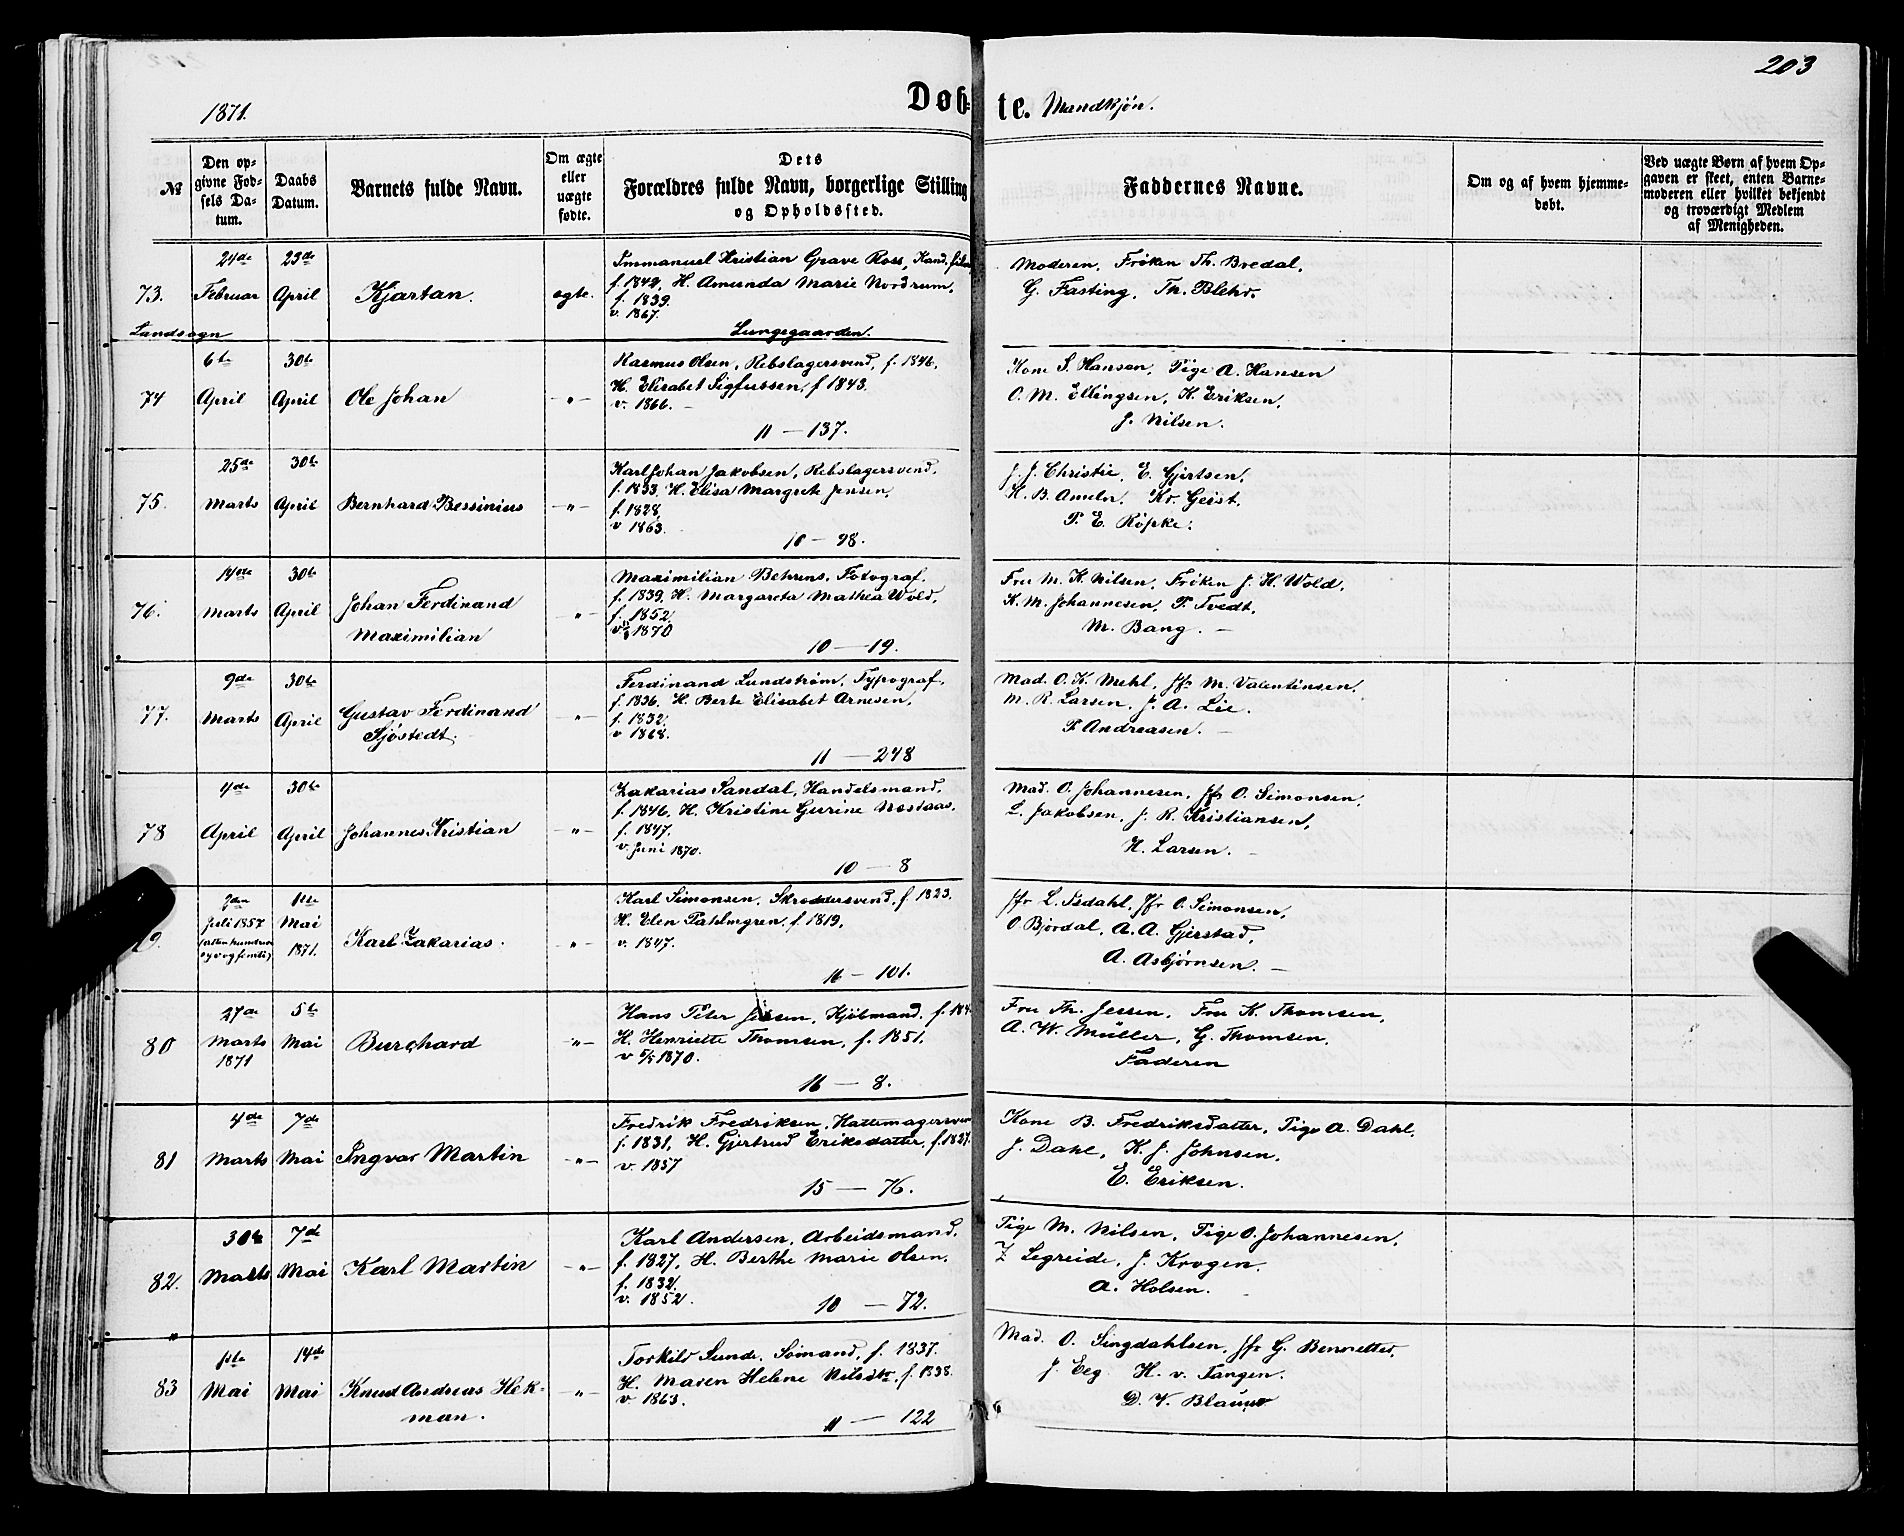 203
1871.
Døb-te. Mandkjøn.
№
Den op-
givne Fød-
sels Da-
tum.
Daabs
Datum.
Barnets fulde Navn.
Om ægte
eller
uægte
fødte.
Dets
Forældres fulde Navn, borgerlige Stilling
og Opholdssted.
Faddernes Navne.
Om og af hvem hjemme-
døbt.
Ved uægte Børn af hvem Op-
gaven er skeet, enten Barne-
moderen eller hvilket bekjendt
og troværdigt Medlem
af Menigheden.
73.
Landsogn
24de
Februar
23de
April
Kjartan.
ægte.
Immanuel Kristian Grave Ross, Kand.
f. 1842, H. Amunda Marie Nordrum,
f. 1839.
v. 1867.
Lungegaarden.
Moderen, Frøken Th. Bredal,
G. Fasting, Th. Blehr.
74
6te
April
30te
April
Ole Johan
— " —
Rasmus Olsen, Rebslagersvend, f. 1846,
H. Elisabet Sigfussen, f 1843.
v. 1866. —
11 — 137.
Kone S. Hansen, Pige A. Hansen
O. M. Ellingsen, K. Eriksen,
J. Nilsen.
75.
25de
Marts
30te
April
Bernhard Bessinius
— " —
Karl Johan Jakobsen, Rebslagersvend,
f. 1833, H. Elisa Margrete Jensen,
f. 1828,
v 1863.
10 — 98.
J. J. Christie, E. Gjertsen,
H. B. Ameln, Kr. Geist,
P. E. Röpke.
76.
14de
Marts
30te
April
Johan Ferdinand
Maximilian
— " —
Maximilian Behrens, Fotograf,
f. 1839, H. Margareta Mathea Wold,
f. 1852,
1870
10 — 19.
Fru M. K. Nilsen, Frøken J. H. Wold,
K. M. Johannesen, P. Tvedt,
M. Bang. —
77.
9de
Marts
30te
April
Gustav Ferdinand
Sjøstedt.
— " —
Ferdinand Lundstrøm, Typograf,
f. 1836, H. Berte Elisabet Arnesen,
f. 1832,
v 1868.
11 — 248
Mad. O. K. Mehl, Jfr M. Valentinsen,
M. R. Larsen, J. A. Lie.
P Andreasen. —
78
4de
April
30te
April
Johannes Kristian
— " —
Zakarias Sandal, Handelsmand,
f. 1846, H. Kristine Gurine Næstaas,
f. 1847.
v. Juni 1870.
10 — 8
Mad. O. Johannesen, Jfr O. Simonsen,
L. Jakobsen, J. R. Kristiansen,
H. Larsen. —
9.
Juli 1857
(atten hundrede
syv og femti)
1ste
Mai
1871.
Karl Zakarias.
— " —
Karl Simonsen, Skræddersvend, f. 1823.
H. Elen Pahlmgren, f. 1819,
v. 1847.
16 — 101.
Jfr L. Isdahl, Jfr O. Simonsen,
O Bjørdal, A. A. Gjerstad,
A. Asbjørnsen. —
80
27de
Marts
1871
5te
Mai
Burchard
— " —
Hans Peter Jessen, Kjøbmand, f. 184
H. Henriette Thomsen, f. 1851,
v 5/5 1870.
16 — 8.
Fru Th. Jessen, Fru K. Thomsen,
A. W. Müller, G. Thomsen,
Faderen
81
4de
Marts
7de
Mai
Ingvar Martin
— " —
Fredrik Fredriksen, Hattemagersven
f. 1831, H. Gjertrud Eriksdatter, f. 1827.
v. 1857
15 — 76.
Kone B. Fredriksdatter, Pige A. Dahl,
J. Dahl, K. J. Johnsen,
E. Eriksen.
82.
30te
Marts
7de
Mai
Karl Martin
— " —
Karl Andersen, Arbeidsmand,
f. 1827, H. Berthe Marie Olsen,
f. 1832.
v. 1852.
10 — 72.
Pige M. Nilsen, Pige O. Johannesen,
Z Legreide, J. Krogen.
A. Holsen.
83
1ste
Mai
14de
Mai
Knud Andreas Hek-
man.
— " —
Torkild Sunde, Sømand, f. 1837.
H. Maren Helene Nilsdtr, f. 1838.
v. 1863.
11 — 122
Mad. O. Singdahlsen, Jfr G. Bennetter,
J. Eeg H. v. Tangen.
D. V. Blauuw